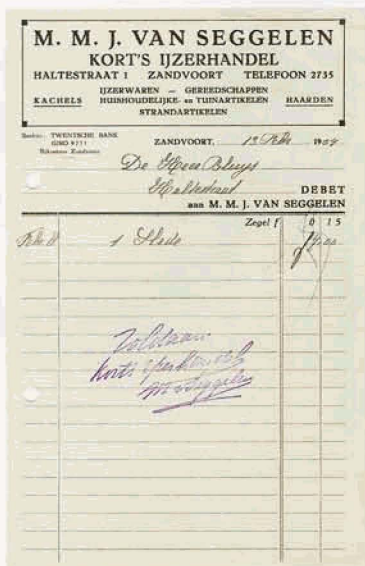 M. M. J. VAN SEGGELEN
KORT'S IJZERHANDEL
HALTESTRAAT 1 ZANDVOORT TELEFOON 2735
IJZERWAREN — GEREEDSCHAPPEN
KACHELS HUISHOUDELIJKE- en TUINARTIKELEN HAARDEN
STRANDARTIKELEN
TWENTSCHE BANK
GIRO 9271
ZANDVOORT, 19
De Heer Bluys
Haltestraat
DEBET
aan M. M. J. VAN SEGGELEN
Zegel f 0 15
1 Slede
Voldaan
Korts Ijzerhandel